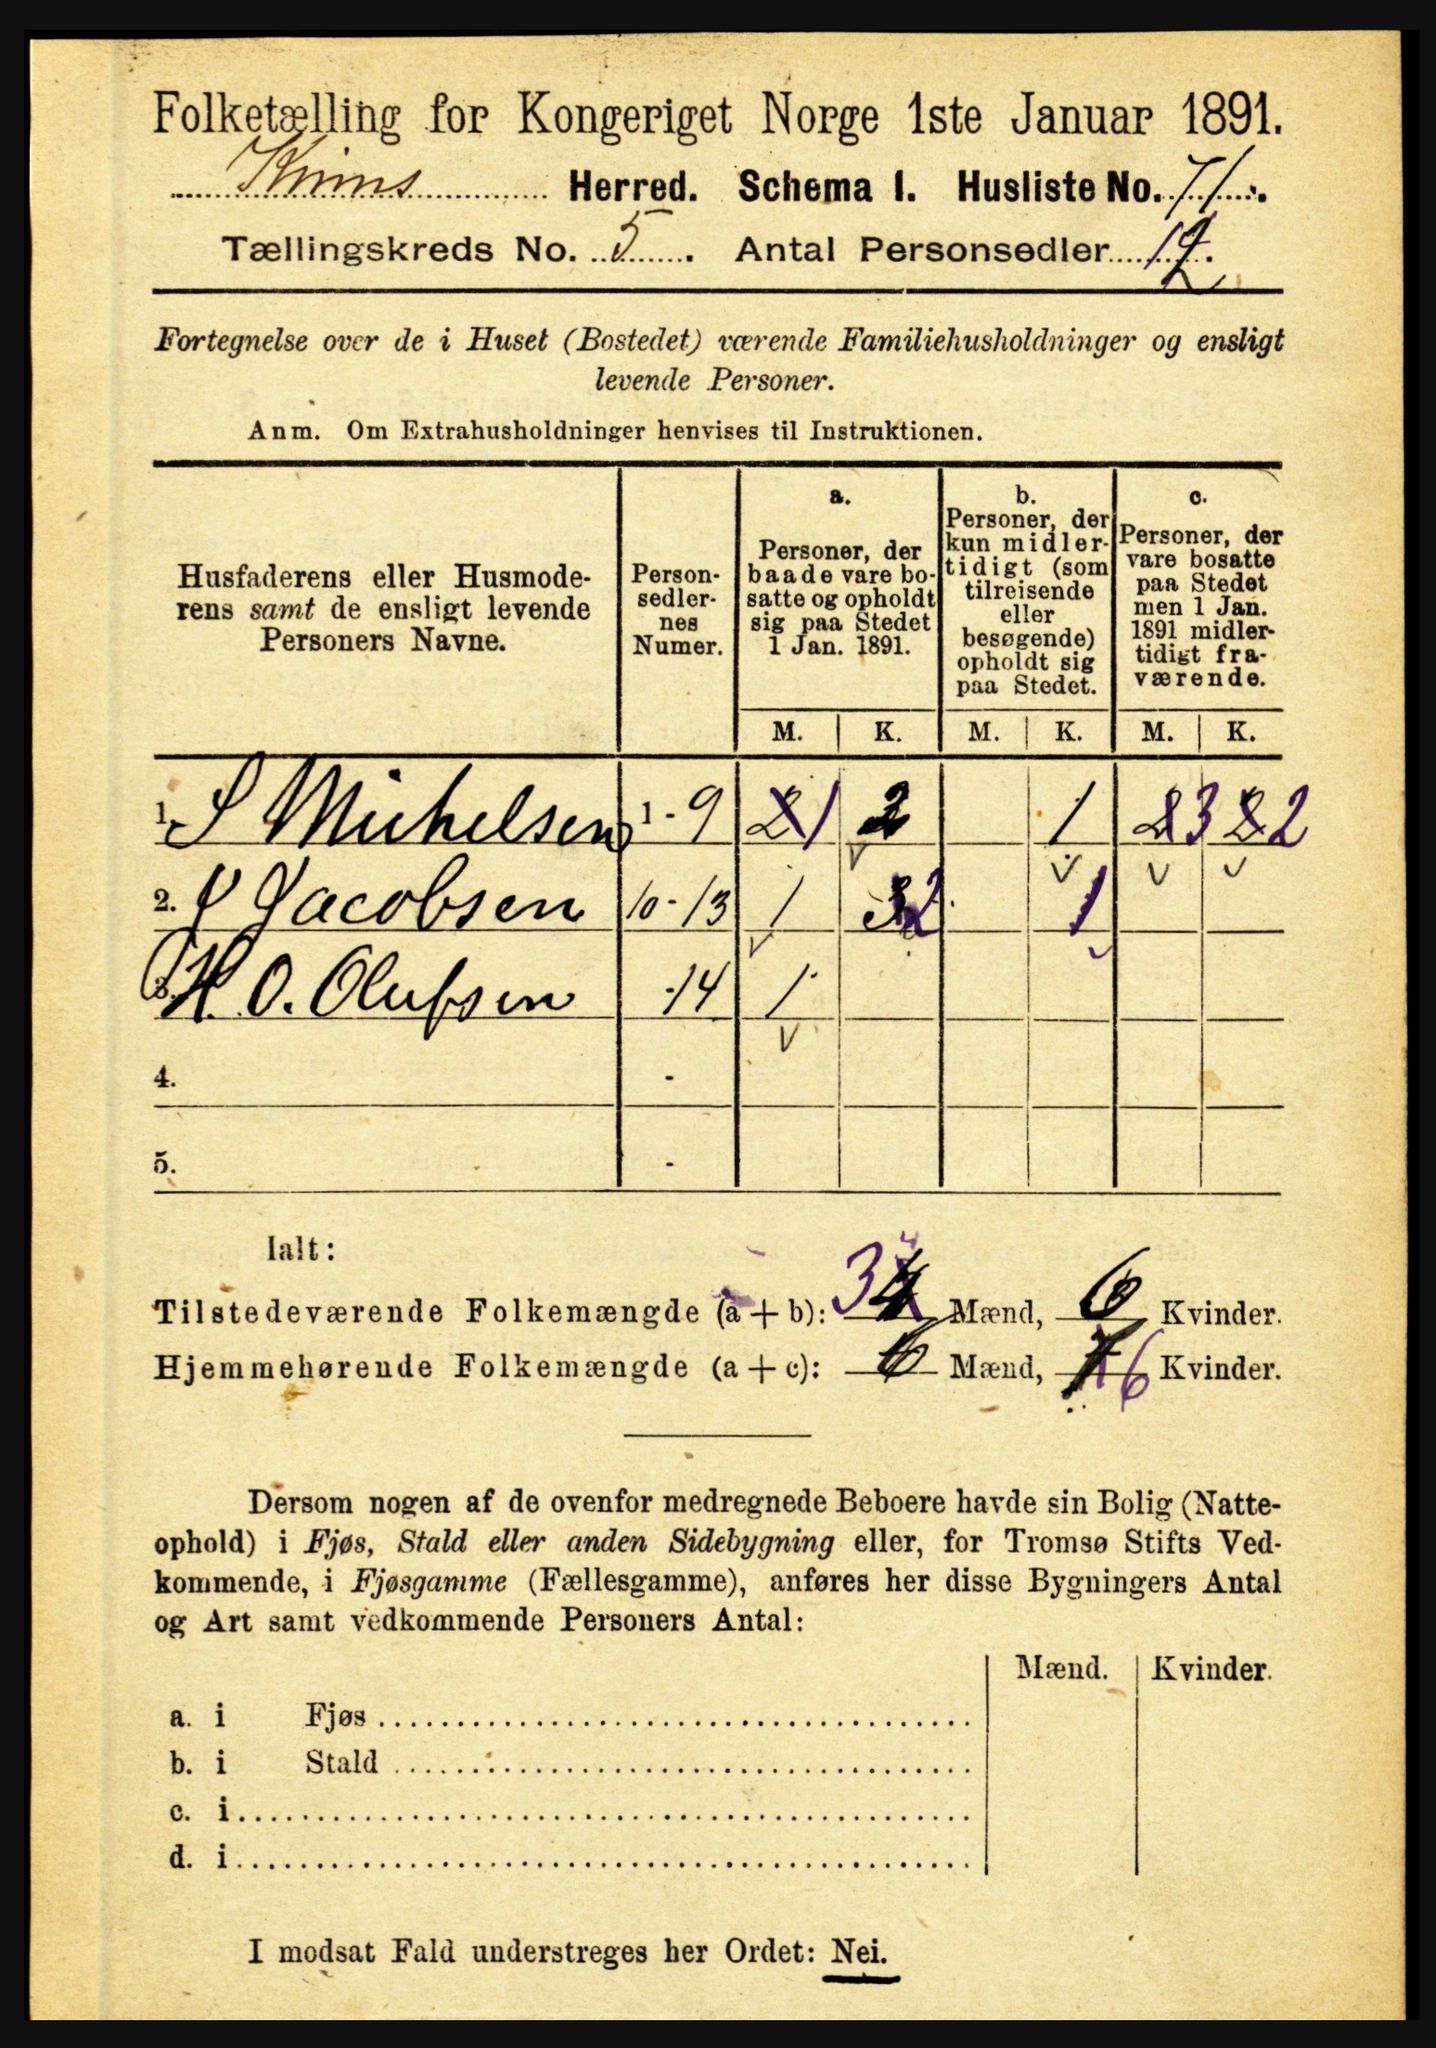 Folketælling for Kongeriget Norge 1ste Januar 1891.
Kinns Herred. Schema I. Husliste No. 71.
Tællingskreds No. 5. Antal Personsedler 14.
Fortegnelse over de i Huset (Bostedet) værende Familiehusholdninger og ensligt
levende Personer.
Anm. Om Extrahusholdninger henvises til Instruktionen.
Husfaderens eller Husmode-
rens samt de ensligt levende
Personers Navne.
Person-
sedler-
nes
Numer.
a.
Personer, der
baade vare bo-
satte og opholdt
sig paa Stedet
1 Jan. 1891.
b.
Personer, der
kun midler-
tidigt (som
tilreisende
eller
besøgende)
opholdt sig
paa Stedet.
c.
Personer, der
vare bosatte
paa Stedet
men 1 Jan.
1891 midler-
tidigt fra-
værende.
M. K. M. K. M. K.
1. S Michelsen 1 - 9 1 2 1 3 2
2. J Jacobsen 10 - 13 1 2 1
3. H. O. Olufsen - 14 1
4. -
5. -
Ialt:
Tilstedeværende Folkemængde (a + b): 3 Mænd, 6 Kvinder.
Hjemmehørende Folkemængde (a + c): 6 Mænd, 7 6 Kvinder.
Dersom nogen af de ovenfor medregnede Beboere havde sin Bolig (Natte-
ophold) i Fjøs, Stald eller anden Sidebygning eller, for Tromsø Stifts Ved-
kommende, i Fjøsgamme (Fællesgamme), anføres her disse Bygningers Antal
og Art samt vedkommende Personers Antal:
Mænd. Kvinder.
a. i Fjøs
b. i Stald
c. i
d. i
I modsat Fald understreges her Ordet: Nei.